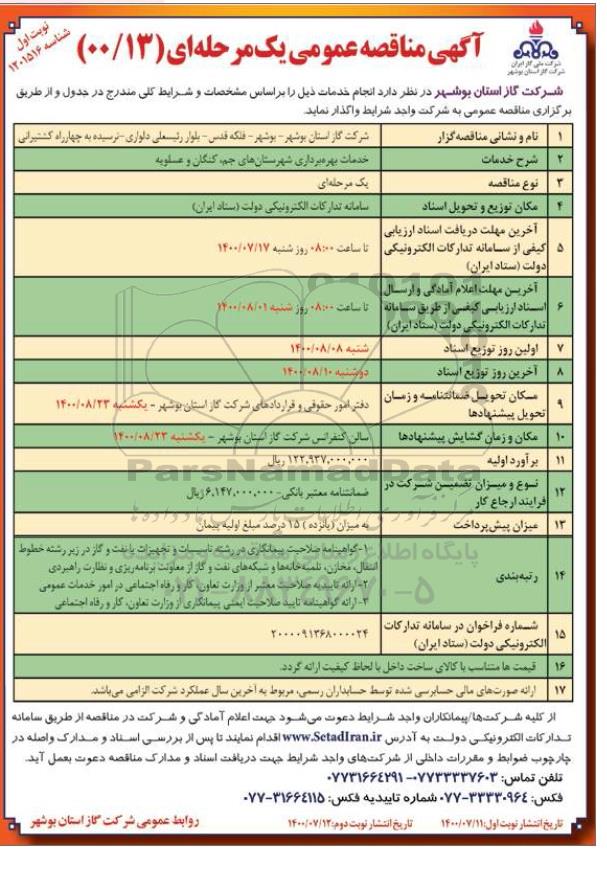 نوبت اول
شناسه ۱۲۰۱۵۱۶
آگهی مناقصه عمومی یک مرحله‌ای (۰۰/۱۳)
شرکت ملی گاز ایران
شرکت گاز استان بوشهر
شرکت گاز استان بوشهر در نظر دارد انجام خدمات ذیل را براساس مشخصات و شرایط کلی مندرج در جدول و از طریق
برگزاری مناقصه عمومی به شرکت واجد شرایط واگذار نماید.
۱ نام و نشانی مناقصه‌گزار شرکت گاز استان بوشهر- بوشهر- فلکه قدس- بلوار رئیسعلی دلواری -نرسیده به چهارراه کشتیرانی
۲ شرح خدمات خدمات بهره‌برداری شهرستان‌های جم، کنگان و عسلویه
۳ نوع مناقصه یک مرحله‌ای
۴ مکان توزیع و تحویل اسناد سامانه تدارکات الکترونیکی دولت (ستاد ایران)
۵ آخرین مهلت دریافت اسناد ارزیابی
کیفی از سامانه تدارکات الکترونیکی
دولت (ستاد ایران)
تا ساعت ۰۸:۰۰ روز شنبه ۱۴۰۰/۰۷/۱۷
۶ آخرین مهلت اعلام آمادگی و ارسال
اسناد ارزیابی کیفی از طریق سامانه
تدارکات الکترونیکی دولت (ستاد ایران)
تا ساعت ۰۸:۰۰ روز شنبه ۱۴۰۰/۰۸/۰۱
۷ اولین روز توزیع اسناد شنبه ۱۴۰۰/۰۸/۰۸
۸ آخرین روز توزیع اسناد دوشنبه ۱۴۰۰/۰۸/۱۰
۹ مکان تحویل ضمانتنامه و زمان
تحویل پیشنهادها
دفتر امور حقوقی و قراردادهای شرکت گاز استان بوشهر - یکشنبه ۱۴۰۰/۰۸/۲۳
۱۰ مکان و زمان گشایش پیشنهادها سالن کنفرانس شرکت گاز استان بوشهر - یکشنبه ۱۴۰۰/۰۸/۲۳
۱۱ برآورد اولیه ۱۲۲,۹۳۷,۰۰۰,۰۰۰ ریال
۱۲ نوع و میزان تضمین شرکت در
فرایند ارجاع کار
ضمانتنامه معتبر بانکی- ۶,۱۴۷,۰۰۰,۰۰۰ ریال
۱۳ میزان پیش‌پرداخت به میزان (پانزده) ۱۵ درصد مبلغ اولیه پیمان
۱۴ رتبه‌بندی
۱-گواهینامه صلاحیت پیمانکاری در رشته تاسیسات و تجهیزات یا نفت و گاز در زیر رشته خطوط
انتقال، مخازن، تلمبه‌خانه‌ها و شبکه‌های نفت و گاز از معاونت برنامه‌ریزی و نظارت راهبردی
۲- ارائه تاییدیه صلاحیت معتبر از وزارت تعاون، کار و رفاه اجتماعی در امور خدمات عمومی
۳- ارائه گواهینامه تایید صلاحیت ایمنی پیمانکاری از وزارت تعاون، کار و رفاه اجتماعی
۱۵ شماره فراخوان در سامانه تدارکات
الکترونیکی دولت (ستاد ایران)
۲۰۰۰۰۹۱۳۶۸۰۰۰۰۲۴
۱۶ قیمت ها متناسب با کالای ساخت داخل با لحاظ کیفیت ارائه گردد.
۱۷ ارائه صورت‌های مالی حسابرسی شده توسط حسابداران رسمی، مربوط به آخرین سال عملکرد شرکت الزامی می‌باشد.
از کلیه شرکت‌ها/پیمانکاران واجد شرایط دعوت می‌شود جهت اعلام آمادگی و شرکت در مناقصه از طریق سامانه
تدارکات الکترونیکی دولت به آدرس www.SetadIran.ir اقدام نمایند تا پس از بررسی اسناد و مدارک واصله در
چارچوب ضوابط و مقررات داخلی از شرکت‌های واجد شرایط جهت دریافت اسناد و مدارک مناقصه دعوت بعمل آید.
تلفن تماس: ۰۷۷۳۳۳۳۷۶۰۳- ۰۷۷۳۱۶۶۴۲۹۱
فکس: ۳۳۳۳۰۹۶۴-۰۷۷ شماره تاییدیه فکس: ۳۱۶۶۴۱۱۵-۰۷۷
تاریخ انتشار نوبت اول: ۱۴۰۰/۰۷/۱۱ تاریخ انتشار نوبت دوم: ۱۴۰۰/۰۷/۱۲ روابط عمومی شرکت گاز استان بوشهر
ParsNamadData